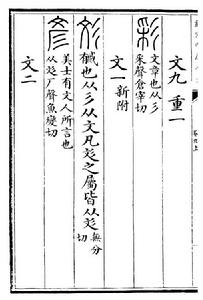 文九 重一
彩 文章也从彡
采聲倉宰切
文一 新附
彣 戫也从彡从文凡彣之屬皆从彣 無分
切
彥 美士有文人所言也
从彣厂聲魚變切
文二